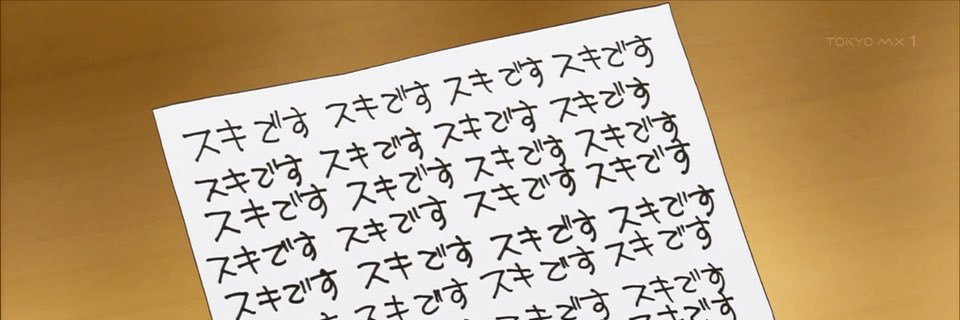 TOKYO MX 1
スキです スキです スキです スキです
スキです スキです スキです スキです
スキです スキです スキです スキです
スキです スキです スキです スキです
スキです スキです スキです スキです
スキです スキです スキです
スキです スキです
スキです